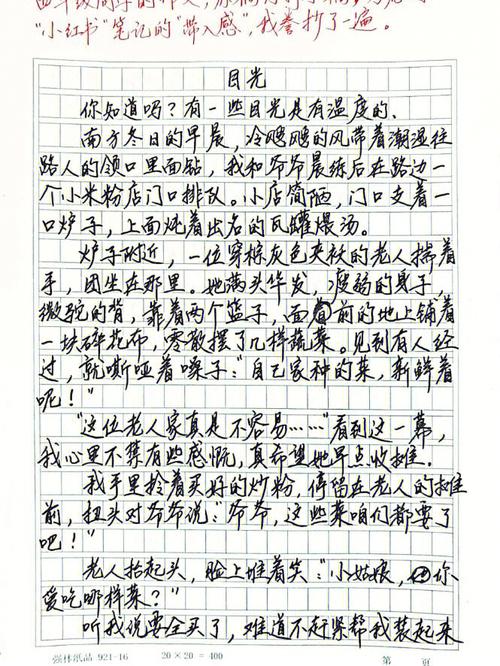 "小红书"笔记的"带入感",我誊抄了一遍。
目光
你知道吗?有一些目光是有温度的。
南方冬日的早晨,冷飕飕的风带着潮湿往
路人的领口里面钻,我和爷爷晨练后在路边一
个小米粉店门口排队。小店简陋,门口支着一
口炉子,上面炖着出名的瓦罐煨汤。
炉子附近,一位穿棕灰色夹袄的老人揣着
手,团坐在那里。她满头华发,瘦弱的身子,
微驼的背,靠着两个篮子,面前的地上铺着
一块碎花布,零散摆了几样蔬菜。见到有人经
过,就嘶哑着嗓子:"自己家种的菜,新鲜着
呢!"
"这位老人家真是不容易……"看到这一幕,
我心里不禁有些感慨,真希望她早点收摊。
我手里拎着买好的炒粉,停留在老人的摊
前,扭头对爷爷说:"爷爷,这些菜咱们都要了
吧!"
老人抬起头,脸上堆着笑:"小姑娘,你
爱吃哪样菜?"
听我说要全买了,难道不赶紧帮我装起来
强林纸品 921-16 20×20=400 第 页